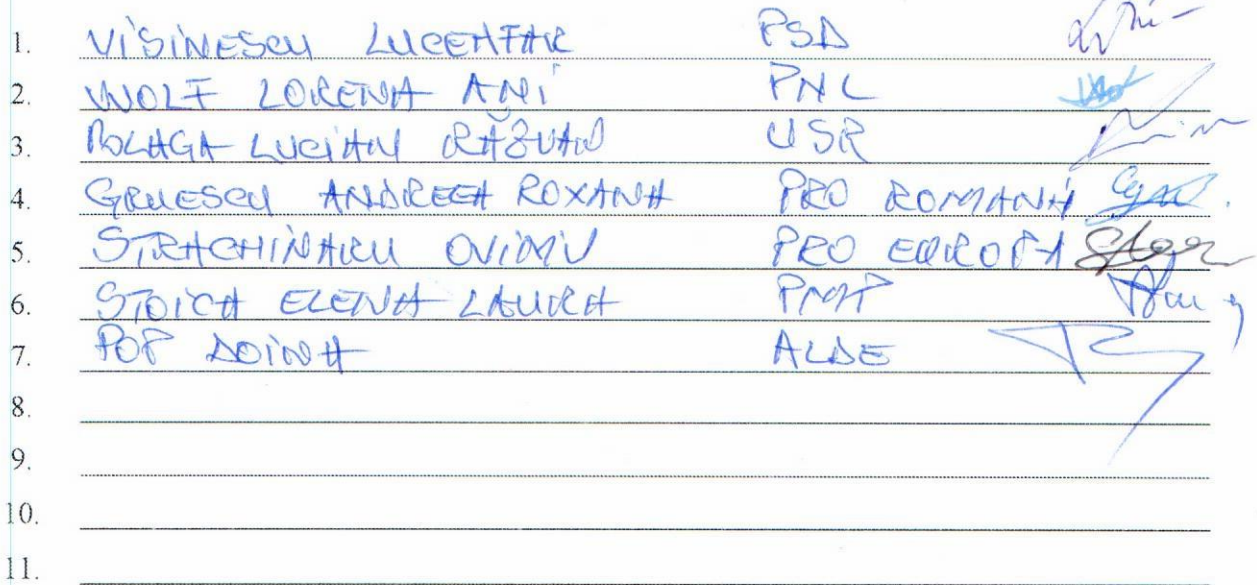 1. VISINESCU LUCEAFAR PSD
2. WOLF LORENA ANI PNL
3. BOLAGA LUCIAN RĂZVAN USR
4. GRUESCU ANDREEA ROXANA PRO ROMANIA
5. STRACHINARU OVIDIU PRO EUROPA
6. STOICA ELENA LAURA PMP
7. POP DOINA ALDE
8.
9.
10.
11.